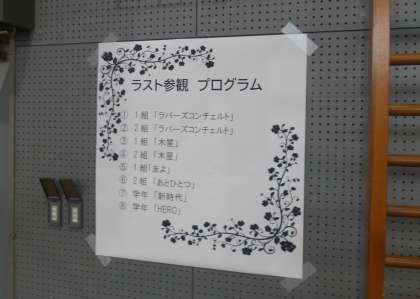 ラスト参観 プログラム
① 1組「ラバーズコンチェルト」
② 2組「ラバーズコンチェルト」
③ 1組「木星」
④ 2組「木星」
⑤ 1組「友よ」
⑥ 2組「あとひとつ」
⑦ 学年「新時代」
⑧ 学年「HERO」